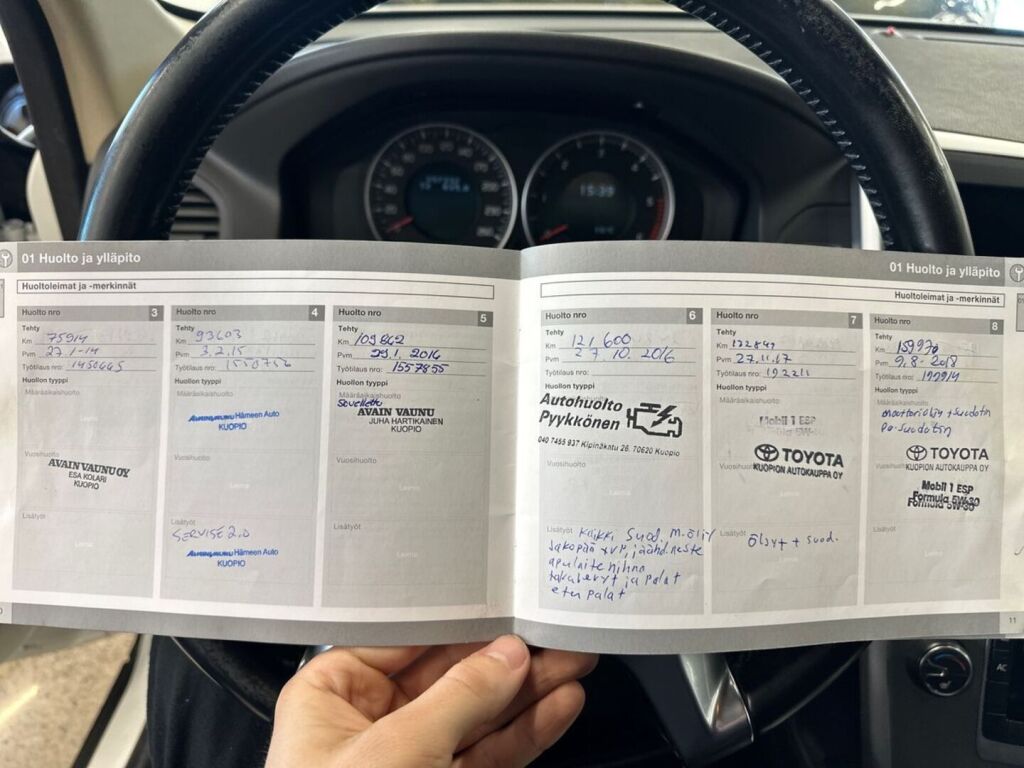 01 Huolto ja ylläpito
Huoltoleimat ja -merkinnät
Huolto nro 3
Tehty
Km 75914
Pvm 27.1-14
Työtilaus nro: 1450665
Huollon tyyppi
Määräaikaishuolto
AVAIN VAUNU OY
ESA KOLARI
KUOPIO
Lisätyöt
Leima
Huolto nro 4
Tehty
Km 93603
Pvm 3.2.15
Työtilaus nro: 1550756
Huollon tyyppi
Määräaikaishuolto
Hämeen Auto
KUOPIO
Vuosihuolto
Leima
Lisätyöt
SERVISE 2.0
Hämeen Auto
KUOPIO
Huolto nro 5
Tehty
Km 109862
Pvm 29.1. 2016
Työtilaus nro: 1557855
Huollon tyyppi
Määräaikaishuolto
Sovellettu
AVAIN VAUNU
JUHA HARTIKAINEN
KUOPIO
Vuosihuolto
Leima
Lisätyöt
Leima
01 Huolto ja ylläpito
Huoltoleimat ja -merkinnät
Huolto nro 6
Tehty
Km 121 600
Pvm 27.10.2016
Työtilaus nro:
Huollon tyyppi
Määräaikaishuolto
Autohuolto
Pyykkönen
040 7455 937 Kipinäkatu 26, 70620 Kuopio
Vuosihuolto
Leima
Lisätyöt Kaikki Suod. M.öljy
Jakopää + VP, jäähd.neste
apulaite hihna
takalevyt ja palat
etu palat
Huolto nro 7
Tehty
Km 132849
Pvm 27.11.17
Työtilaus nro: 192211
Huollon tyyppi
Määräaikaishuolto
Mobil 1 ESP
Vuosihuolto
TOYOTA
KUOPION AUTOKAUPPA OY
Lisätyöt
Öljyt + suod.
Huolto nro 8
Tehty
Km 159970
Pvm 9.8-2018
Työtilaus nro:
Huollon tyyppi
Määräaikaishuolto
moottoriöljy + suodatin
pa-suodatin
TOYOTA
KUOPION AUTOKAUPPA OY
Vuosihuolto
Mobil 1 ESP
Formula 5W-30
Lisätyöt
Leima
11
15:39
AC